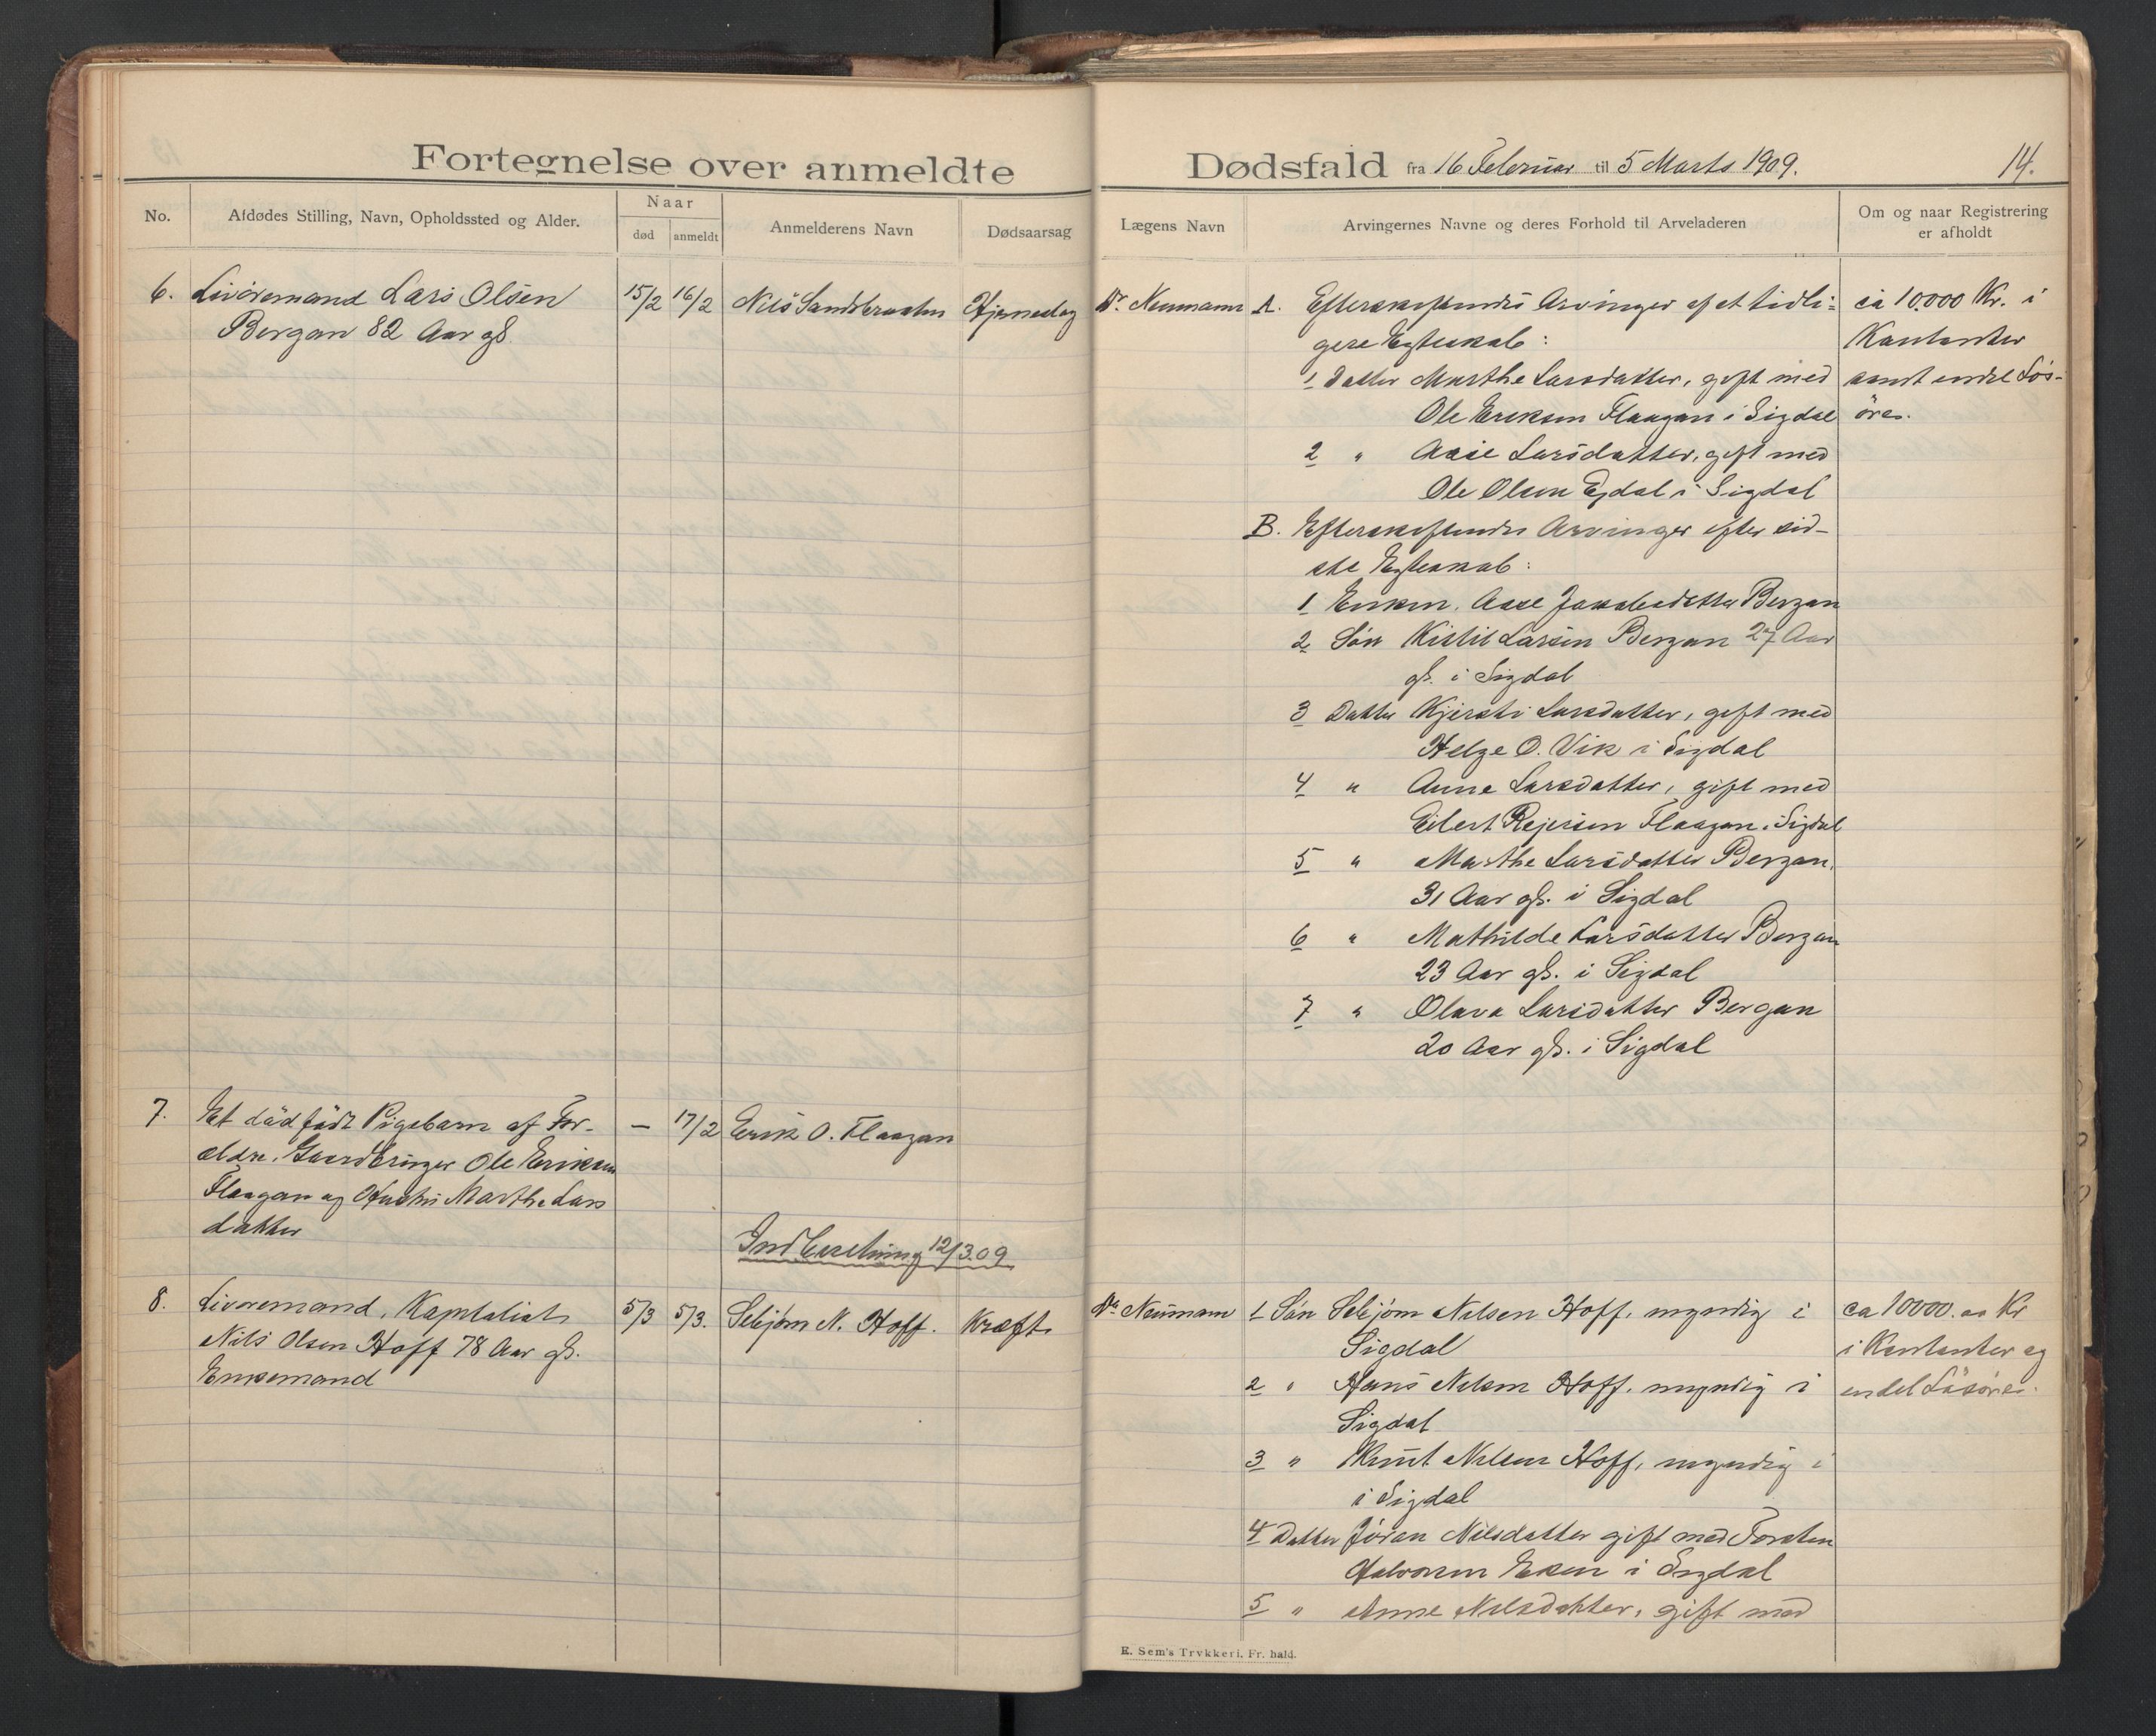 Fortegnelse over anmeldte
No.
Afdødes Stilling, Navn, Opholdssted og Alder.
Naar
død
anmeldt
Anmelderens Navn
Dødsaarsag
6. Livöremand Lars Olsen 15/2 16/2 Nils Sandbraaten Hjerneslag
Bergan 82 Aar gl.
7. Et dödfödt Pigebarn af For- — 17/2 Erik O. Flaagan
ældre. Gaardbruger Ole Eriksen
Flaagan og Hustru Marthe Lars
datter
Indberetning 12/3.09
8. Livöremand, Kapitalist 5/3 5/3. Sebjörn N. Hoff. Kræft
Nils Olsen Hoff 78 Aar gl.
Enkemand
Dødsfald fra 16 Februar til 5 Marts 1909.
14.
Lægens Navn
Arvingernes Navne og deres Forhold til Arveladeren
Om og naar Registrering
er afholdt
Dr. Neumann A. Efterskiftendes Arvinger af et tidli= ca 10000 Kr. i
gere Egteskab: Kontanter
1 Datter Marthe Larsdatter, gift med samt endel Lös-
Ole Eriksen Flaagan i Sigdal öre.
2 " Aase Larsdatter, gift med
Ole Olsen Egdal i Sigdal
B. Efterskiftendes Arvinger efter sid-
ste Egteskab:
1 Enken, Aase Jakobsdatter Bergan
2 Sön Kittil Larsen Bergan 27 Aar
gl. i Sigdal
3 Datter Kjersti Larsdatter, gift med
Helge O. Vik i Sigdal
4 " Anne Larsdatter, gift med
Eilert Rejersen Flaagan i Sigdal
5 " Marthe Larsdatter Bergan,
31 Aar gl. i Sigdal
6 " Mathilde Larsdatter Bergan
23 Aar gl. i Sigdal
7 " Olava Larsdatter Bergan
20 Aar gl. i Sigdal
Dr. Neumann 1 Sön Sebjörn Nilsen Hoff, myndig i ca 10000.00 Kr
Sigdal i Kontanter og
2 " Hans Nilsen Hoff, myndig i endel Lösöre.
Sigdal
3 " Knut Nilsen Hoff, myndig i
i Sigdal
4 Datter Jöran Nilsdatter gift med Torsten
Halvorsen Eken i Sigdal
5 " Anne Nilsdatter, gift med
E. Sem's Trykkeri, Fr. hald.